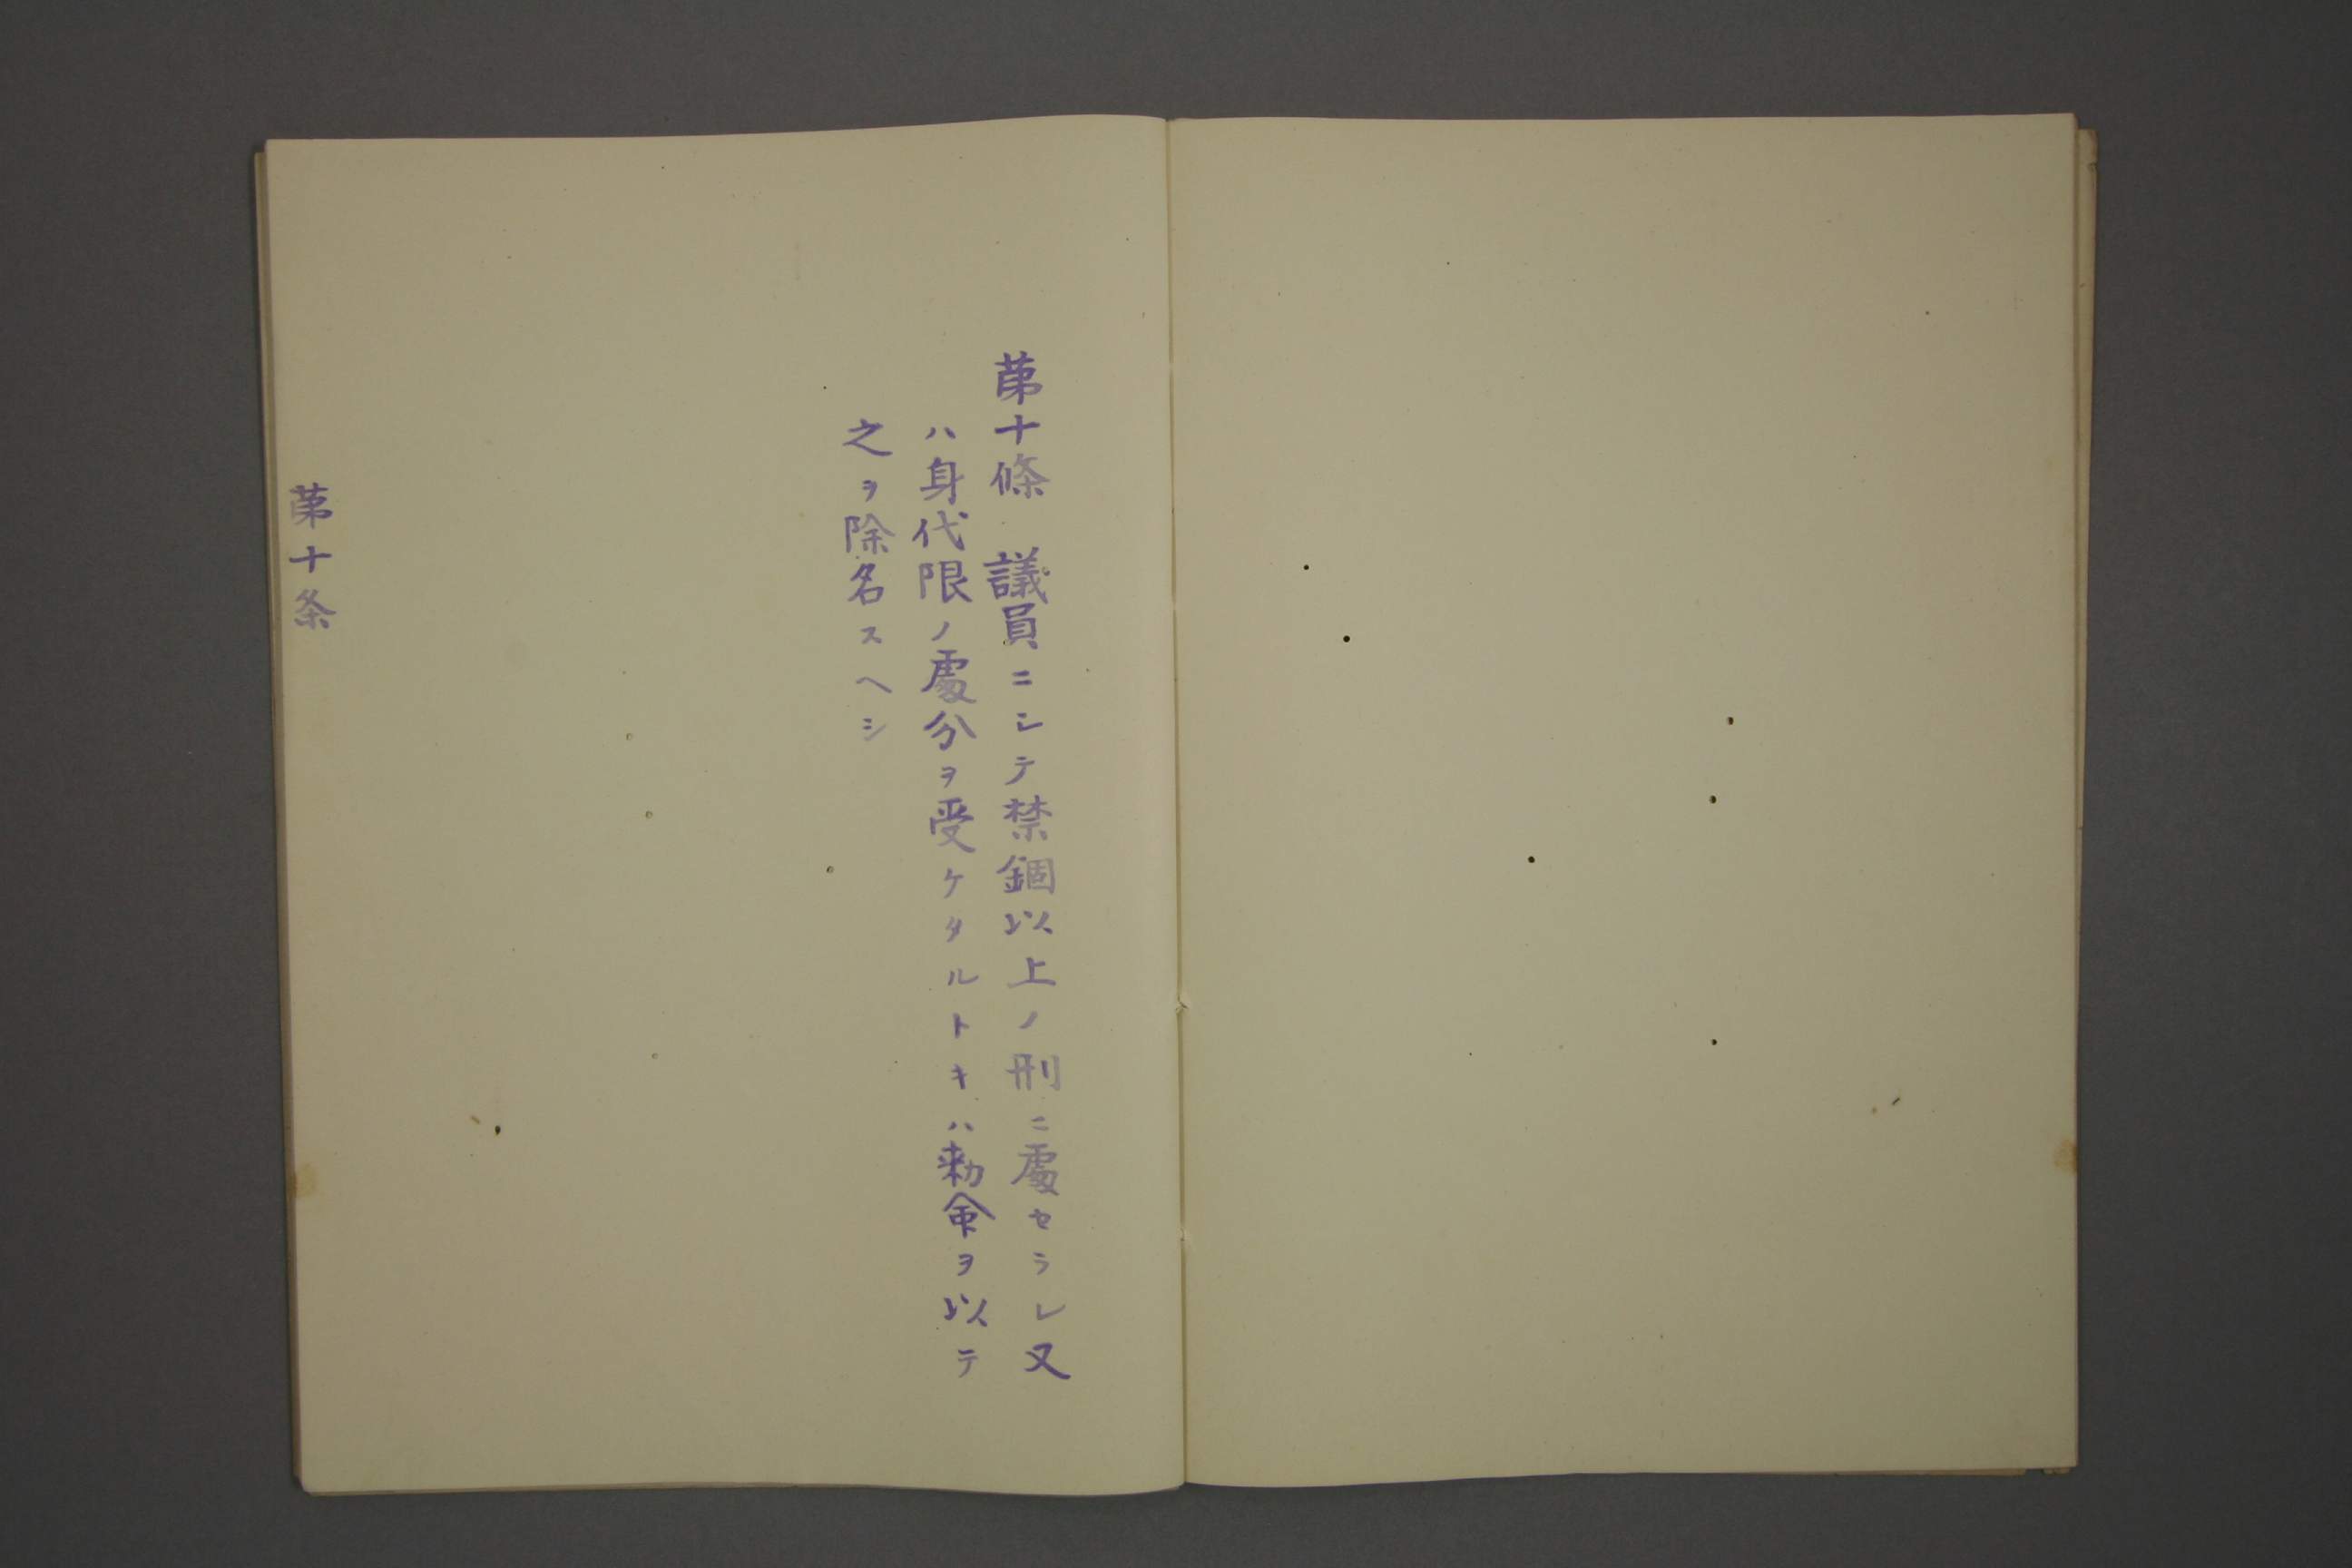 第十條　議員ニシテ禁錮以上ノ刑ニ處セラレ又
ハ身代限ノ處分ヲ受ケタルトキハ勅命ヲ以テ
之ヲ除名スヘシ
第十条